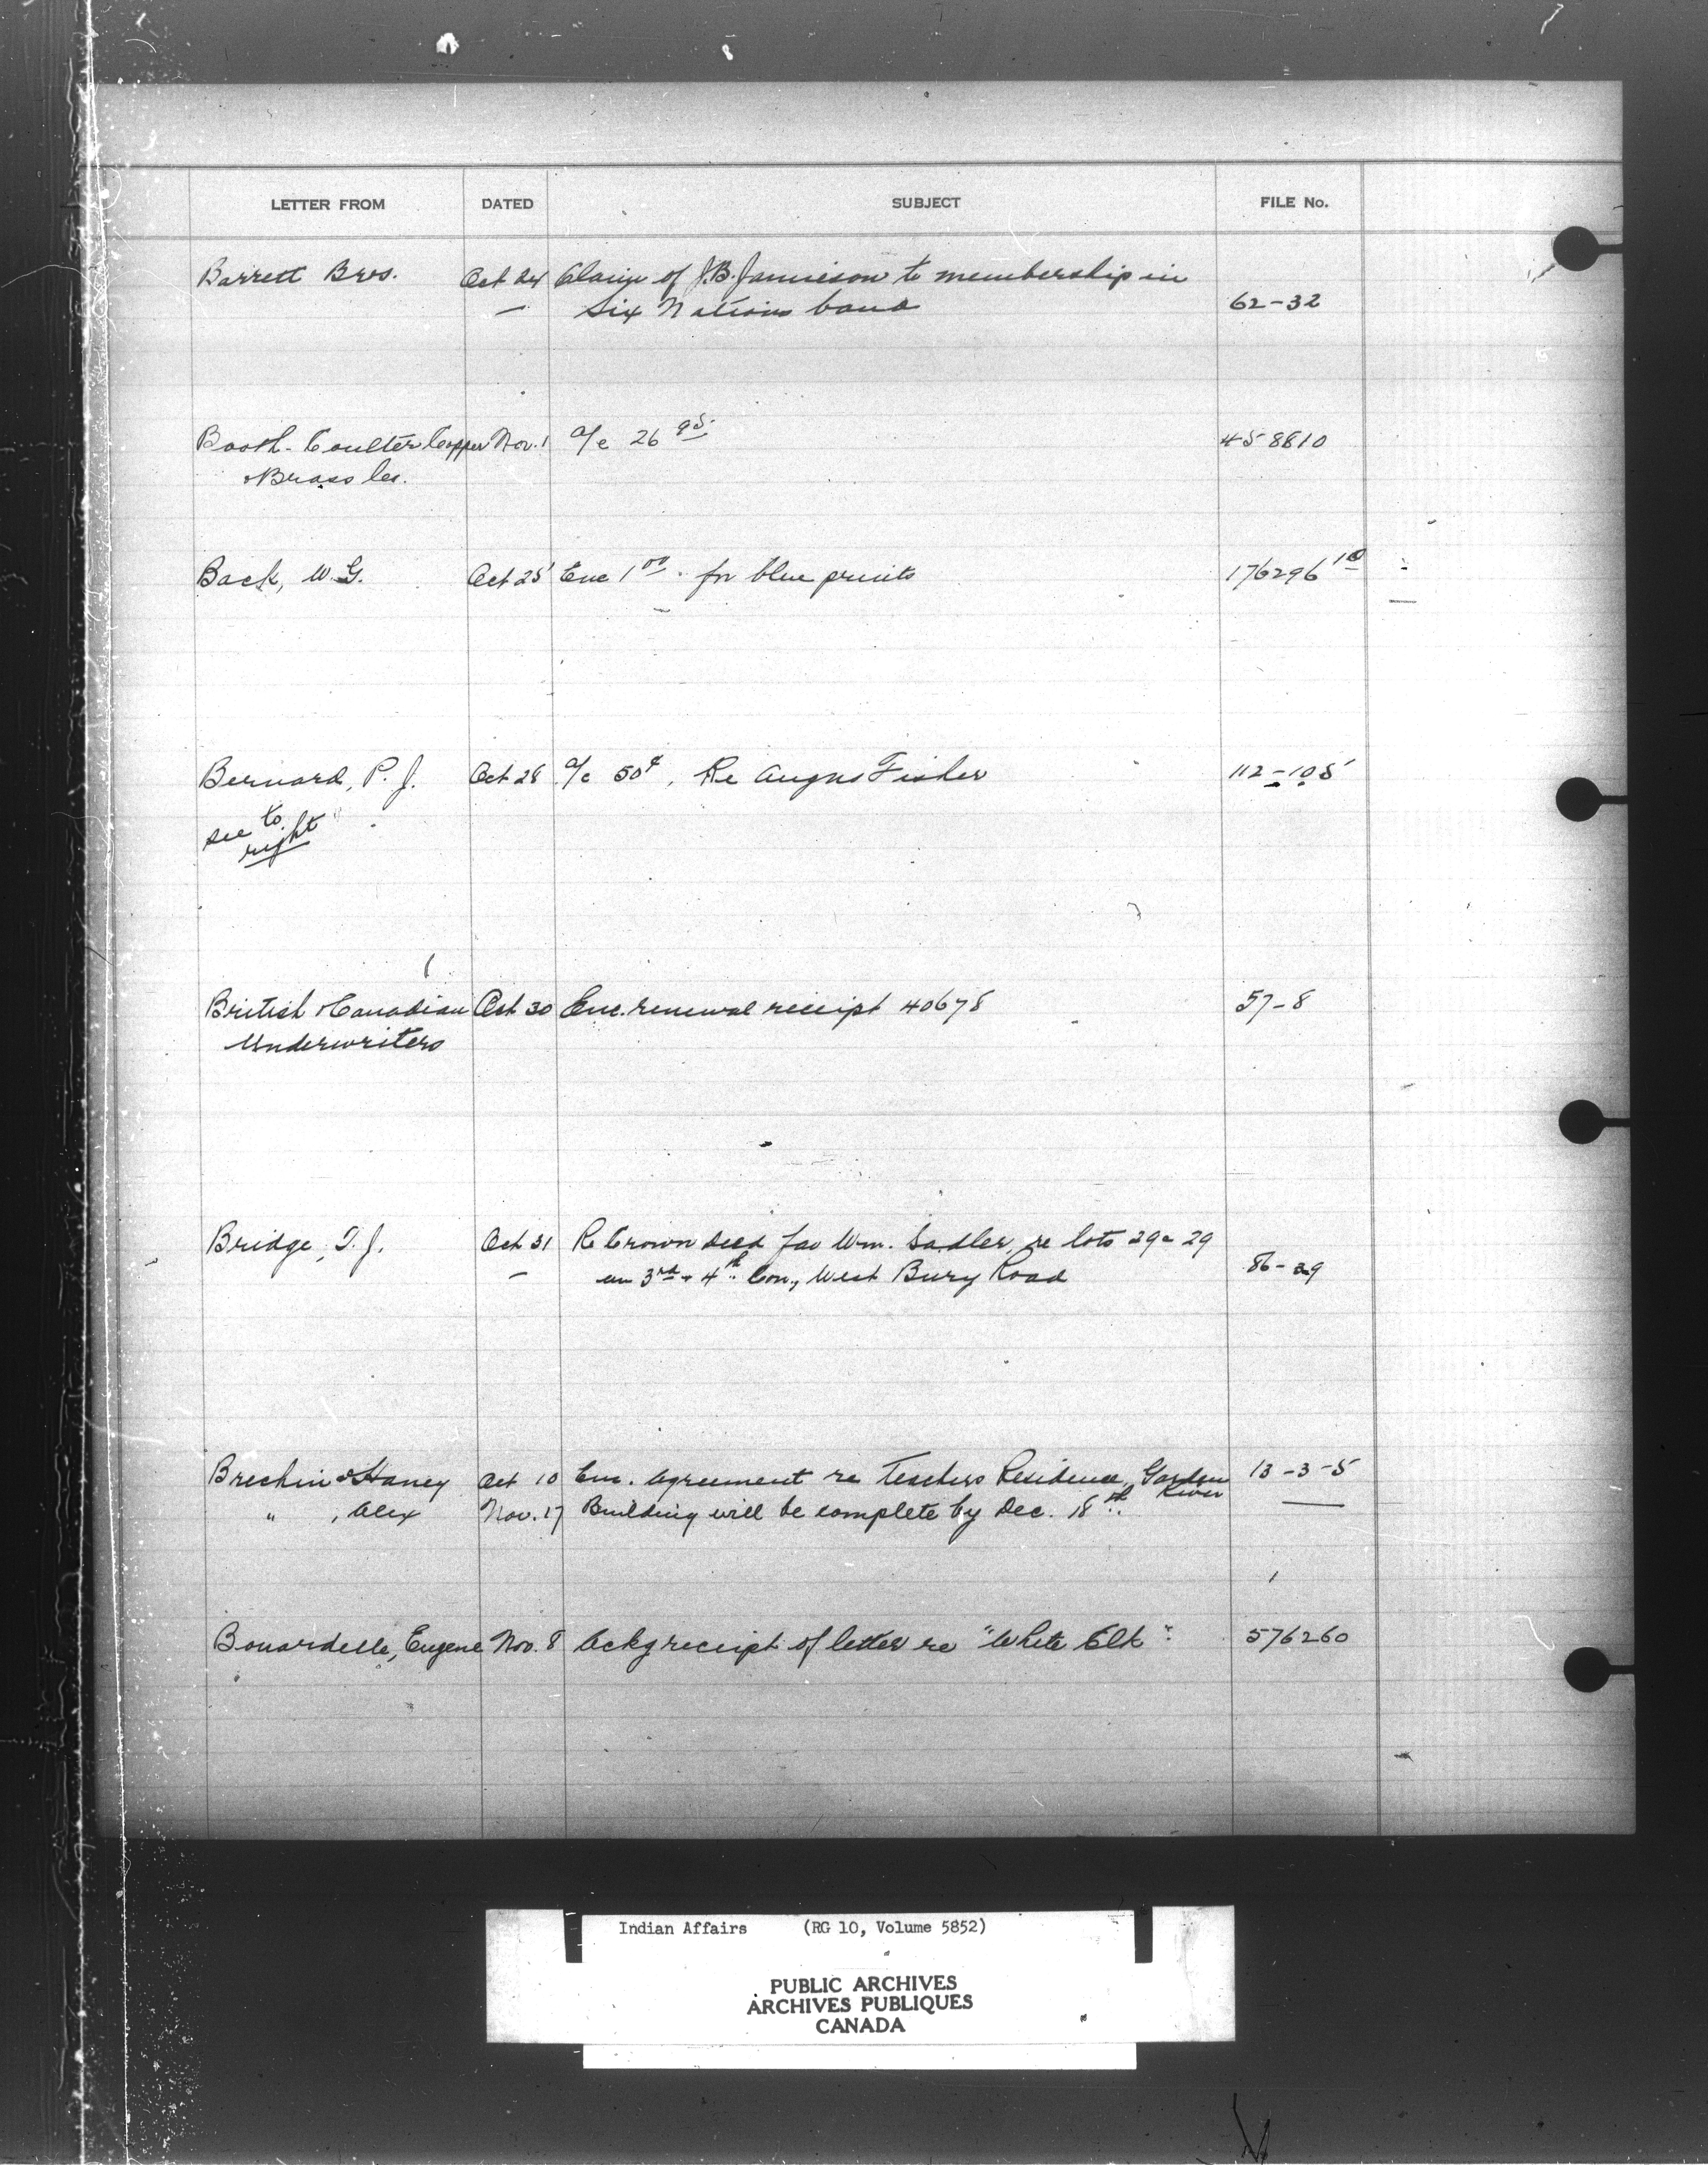 LETTER FROM DATED SUBJECT FILE No.
Barrett Bros. Oct 24 Claim of J.B. Jamieson to membership in
Six Nations band 62-32
Booth-Coulter Copper Nov. 1 a/c 26 95 458810
& Brass Co.
Back, W.G. Oct 25 Enc 1 00 for blue prints 176296 10
Bernard, P.J. Oct 28 a/c 50¢. Re Angus Fisher 112-105
see to
right
British & Canadian Oct 30 Enc. renewal receipt 40678 57-8
Underwriters
Bridge, T.J. Oct 31 Re Crown deed fav Wm. Sadler, re lots 29 & 29
on 3rd & 4th Con., West Bury Road 86-29
Brechin & Haney Oct 10 Enc. agreement re Teachers Residence, Garden River 13-3-5
" , Alex Nov. 17 Building will be complete by Dec. 18th.
Bouardelle, Eugene Nov. 8 Ackg receipt of letter re "White Elk". 576260
Indian Affairs (RG 10, Volume 5852)
PUBLIC ARCHIVES
ARCHIVES PUBLIQUES
CANADA